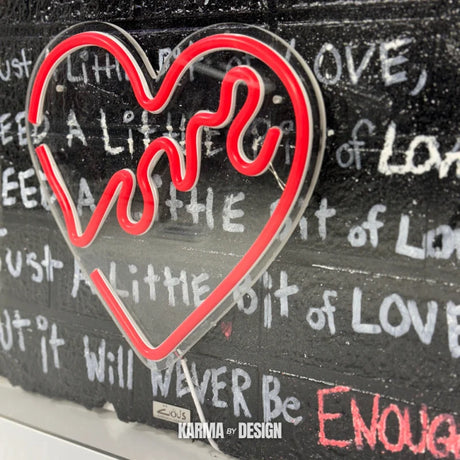 Just A Little Bit of LOVE,
NEED A Little Bit of LOVE
NEED A Little Bit of LOVE
Just A Little Bit of LOVE
But it Will NEVER Be ENOUGH
KARMA BY DESIGN